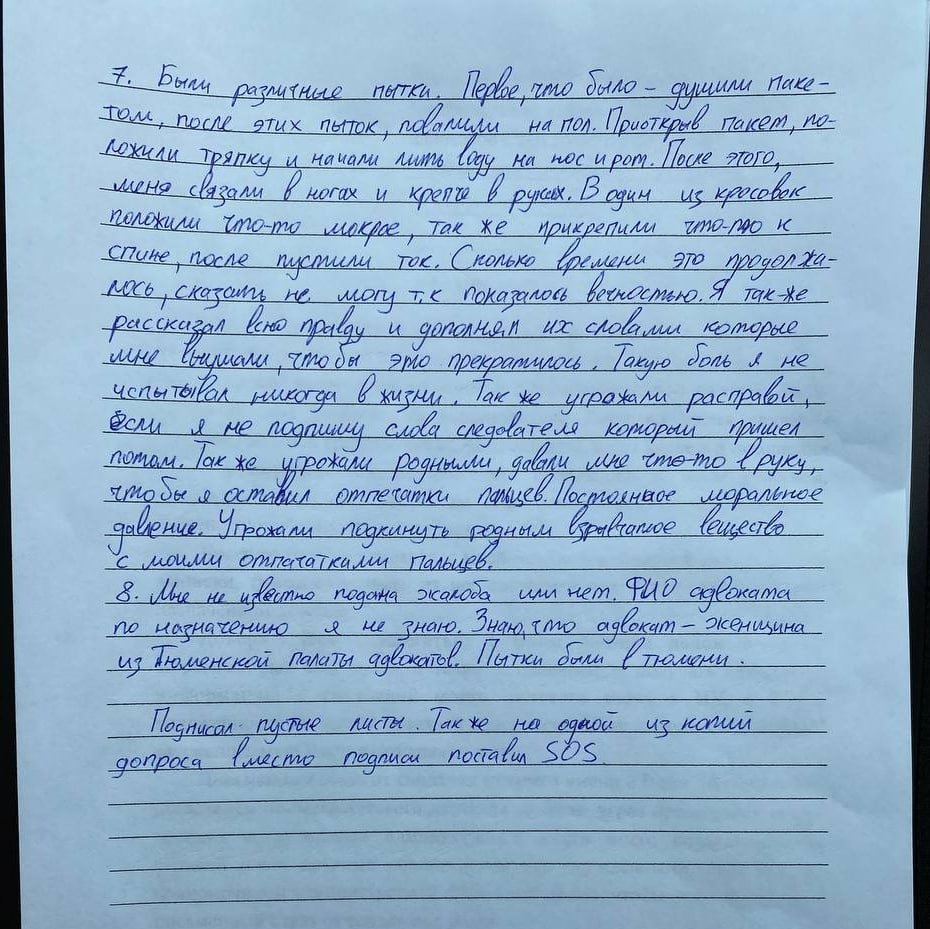 7. Были различные пытки. Первое, что было – душили паке-
том, после этих пыток, повалили на пол. Приоткрыв пакет, по-
ложили тряпку и начали лить воду на нос и рот. После этого,
меня связали в ногах и крепче в руках. В один из кросовок
положили что-то мокрое, так же прикрепили что-то к
спине, после пустили ток. Сколько времени это продолжа-
лось, сказать не могу т.к показалось вечностью. Я так-же
рассказал всю правду и дополнял их словами которые
мне внушали, что бы это прекратилось. Такую боль я не
испытывал никогда в жизни. Так же угрожали расправой,
если я не подпишу слова следователя который пришел
потом. Так же угрожали родными, давали мне что-то в руку,
что бы я оставил отпечатки пальцев. Постоянное моральное
давление. Угрожали подкинуть родным взрывчатое вещество
с моими отпечатками пальцев.
8. Мне не известно подана жалоба или нет. ФИО адвоката
по назначению я не знаю. Знаю, что адвокат – женщина
из Тюменской палаты адвокатов. Пытки были в тюмени.
Подписал пустые листы. Так же на одной из копий
допроса вместо подписи поставил SOS.